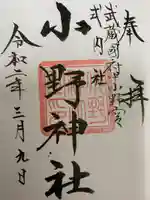 奉拝
武蔵国府小野宮
式内社
小野神社
令和二年三月九日